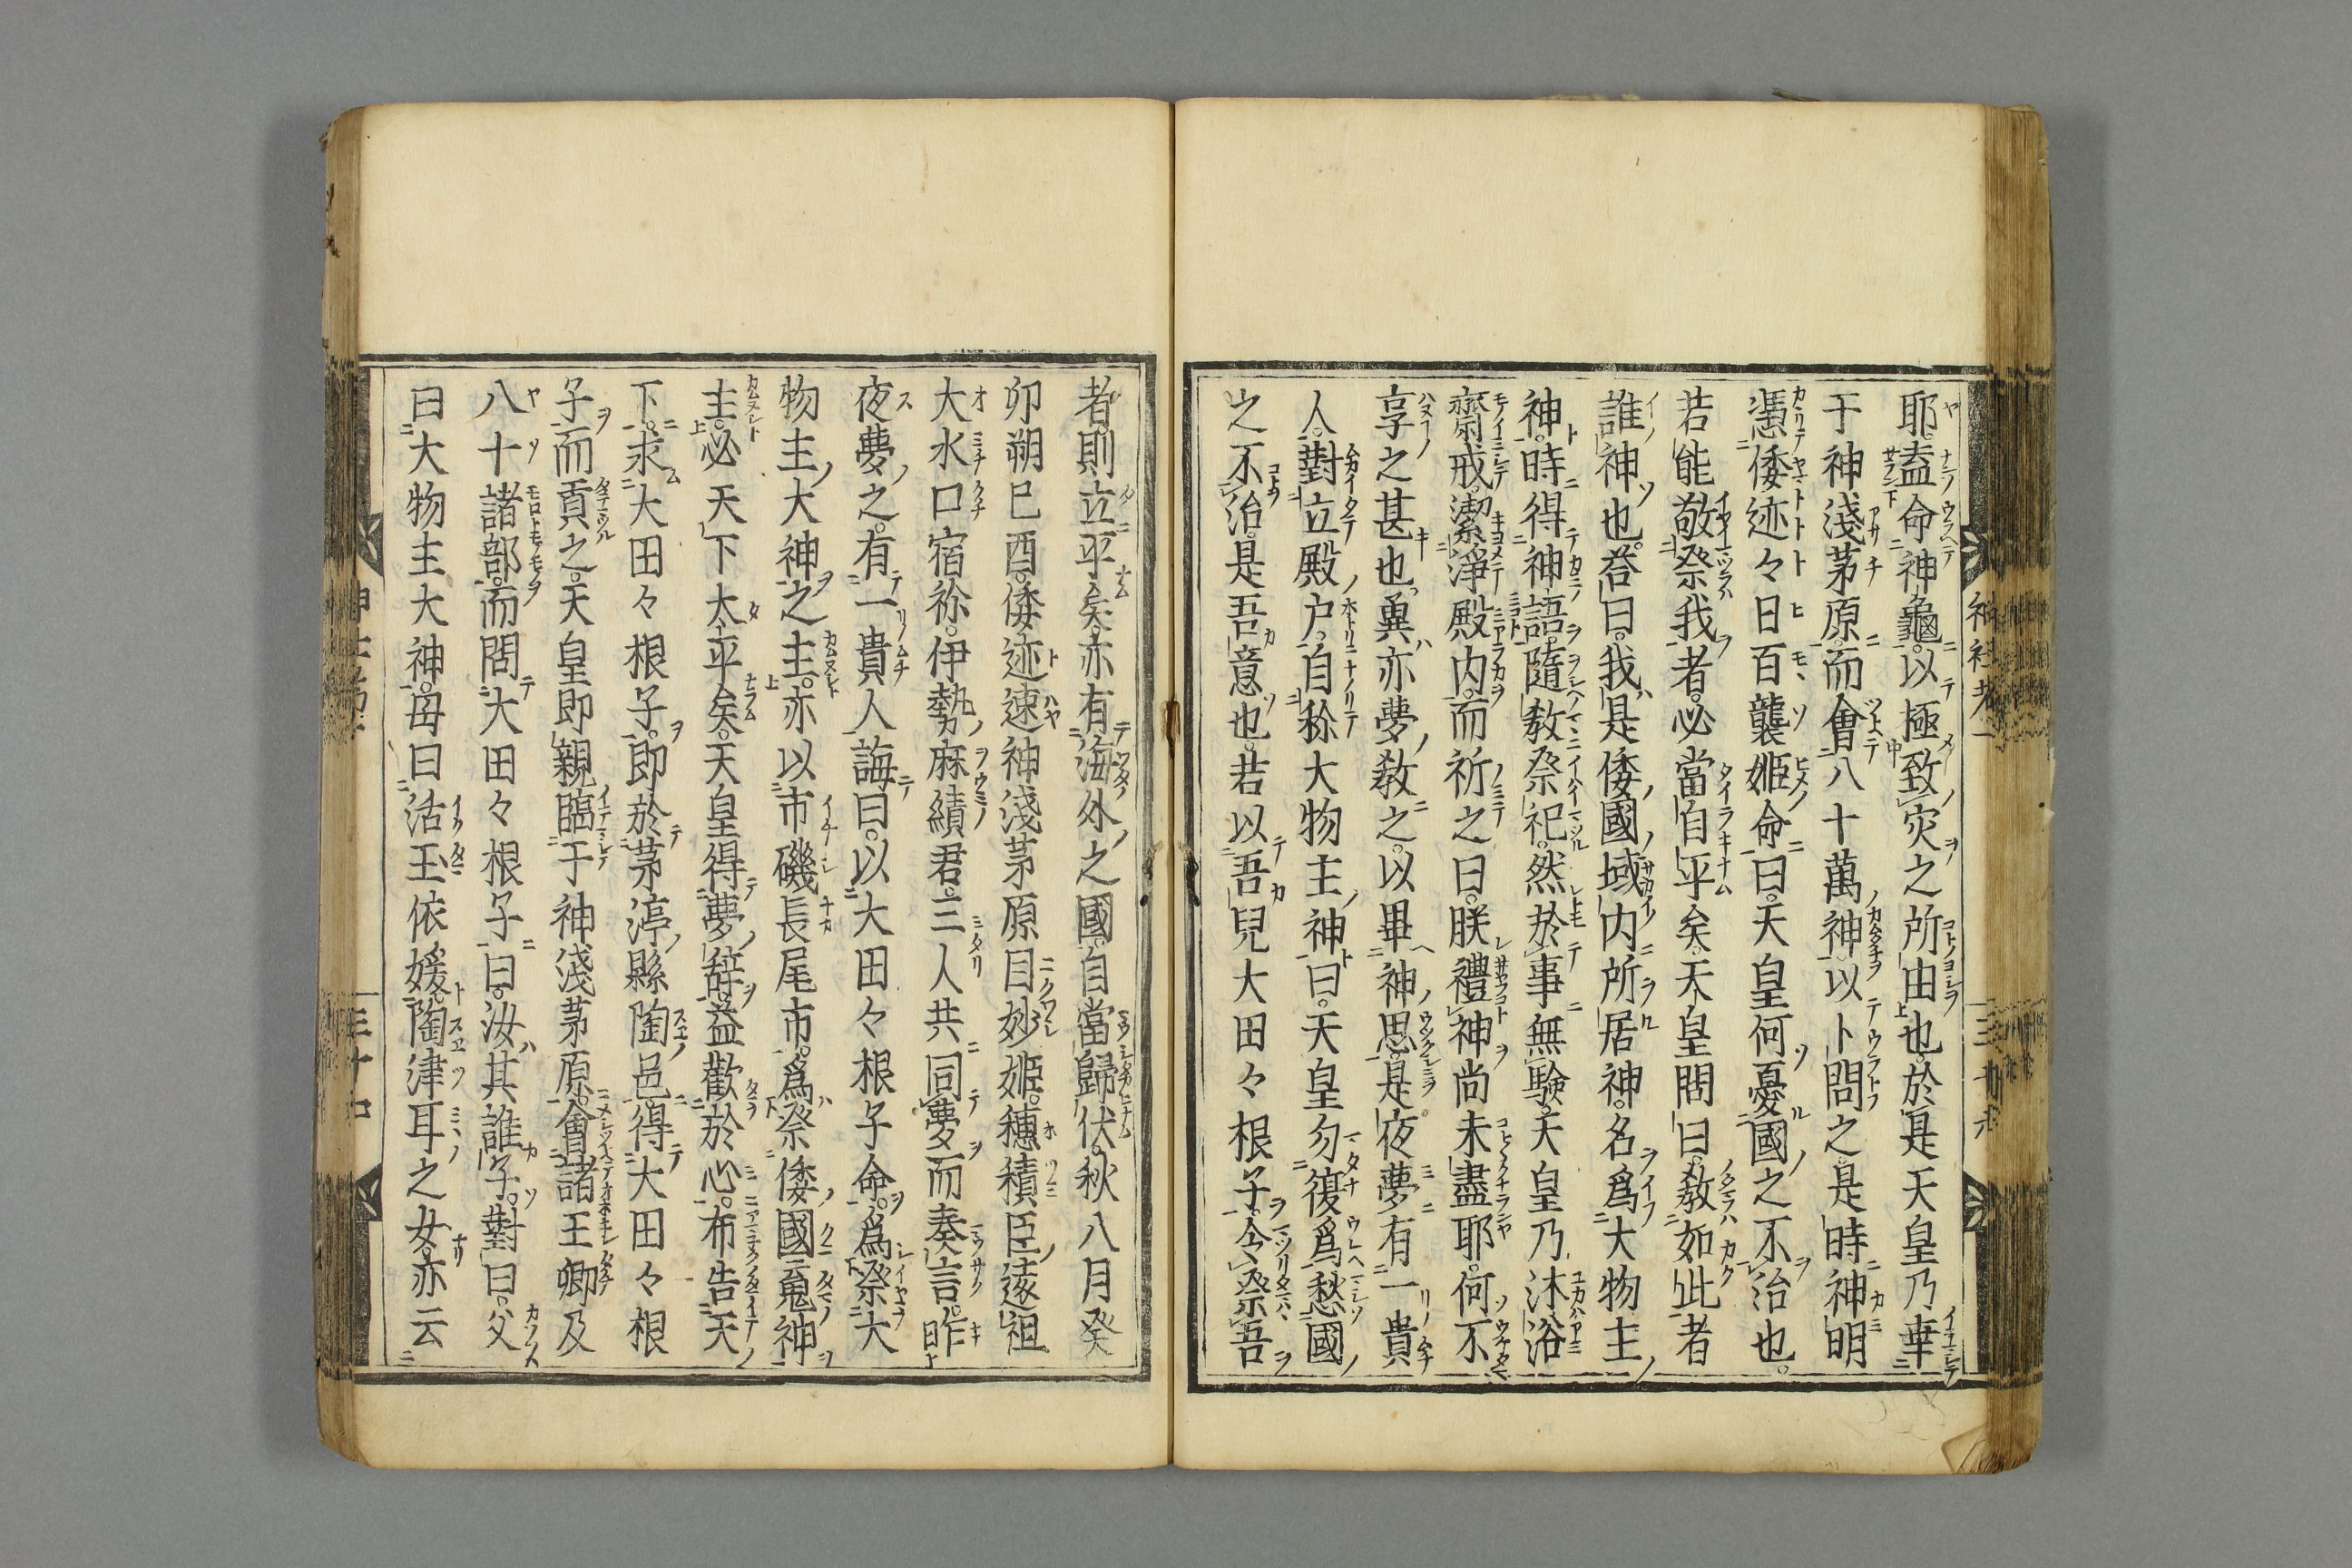 耶。盍命神龜。以極致災之所由也。於是天皇乃幸
于神淺茅原。而會八十萬神。以卜問之。是時神明
憑倭迹々日百襲姬命曰。天皇何憂國之不治也。
若能敬祭我者。必當自平矣。天皇問曰。教如此者
誰神也。荅曰。我是倭國域内所居神。名爲大物主
神。時得神語。隨教祭祀。然於事無驗。天皇乃沐浴
齋戒。潔淨殿内。而祈之曰。朕禮神尚未盡耶。何不
享之甚也。冀亦夢教之。以畢神恩。是夜夢有一貴
人。對立殿戸。自称大物主神曰。天皇勿復爲愁國
之不治。是吾意也。若以吾兒大田々根子。令祭吾
者。則立平矣。亦有海外之國。自當歸伏。秋八月癸
卯朔己酉。倭迹速神淺茅原目妙姬。穗積臣遠祖
大水口宿祢。伊勢麻績君。三人共同夢而奏言。昨
夜夢之。有一貴人。誨曰。以大田々根子命。爲祭大
物主大神之主。亦以市磯長尾市。爲祭倭國䰟神
主。必天下太平矣。天皇得夢辭。益歡於心。布告天
下。求大田々根子。即於茅渟縣陶邑。得大田々根
子而貢之。天皇即親臨于神淺茅原。會諸王卿及
八十諸部。而問大田々根子曰。汝其誰子。對曰。父
曰大物主大神。母曰活玉依媛。陶津耳之女。亦云